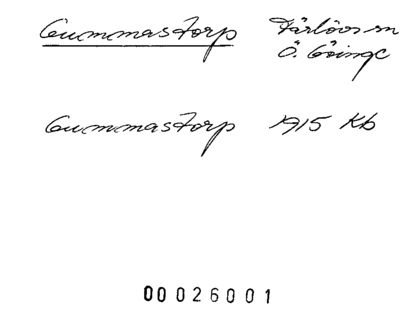 Gummastorp Färlövs sn
Ö. Göinge
Gummastorp 1915 Kb
00026001